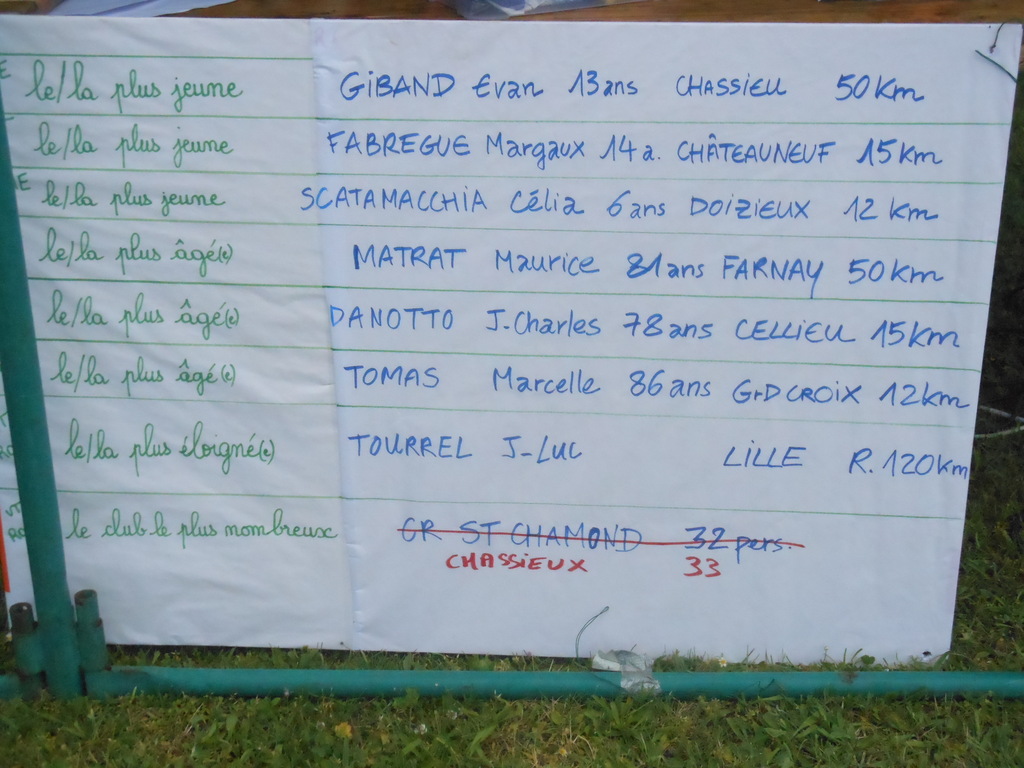 le/la plus jeune GiBAND Evan 13 ans CHASSIEU 50 Km
le/la plus jeune FABREGUE Margaux 14 a. CHÂTEAUNEUF 15 Km
le/la plus jeune SCATAMACCHIA Célia 6 ans DOIZIEUX 12 Km
le/la plus âgé(e) MATRAT Maurice 81 ans FARNAY 50 Km
le/la plus âgé(e) DANOTTO J-Charles 78 ans CELLIEU 15 Km
le/la plus âgé(e) TOMAS Marcelle 86 ans GrD CROIX 12 Km
le/la plus éloigné(e) TOURREL J-LUC LILLE R. 120 Km
le club le plus nombreux CR ST CHAMOND 32 pers.
CHASSIEUX 33